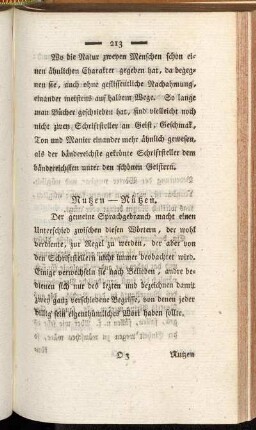 213
Wo die Natur zweyen Menschen schon ei-
nen ähnlichen Charakter gegeben hat, da begeg-
nen sie, auch ohne geflissentliche Nachahmung,
einander meistens auf halbem Wege. So lange
man Bücher geschrieben hat, sind vielleicht noch
nicht zwey Schriftsteller an Geist, Geschmak,
Ton und Manier einander mehr ähnlich gewesen,
als der bänderreichste gekrönte Schriftsteller dem
bänderreichsten unter den schönen Geistern.
Nutzen — Nützen.
Der gemeine Sprachgebrauch macht einen
Unterschied zwischen diesen Wörtern, der wohl
verdiente, zur Regel zu werden, der aber von
den Schriftstellern nicht immer beobachtet wird.
Einige verwechseln sie nach Belieben, andre be-
dienen sich nur des letzten und bezeichnen damit
zwey ganz verschiedene Begriffe, von denen jeder
billig sein eigenthümliches Wort haben sollte.
O 3 Nutzen